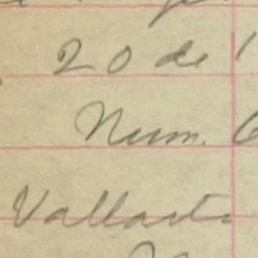 20 de 1
Num. 6
Vallarta